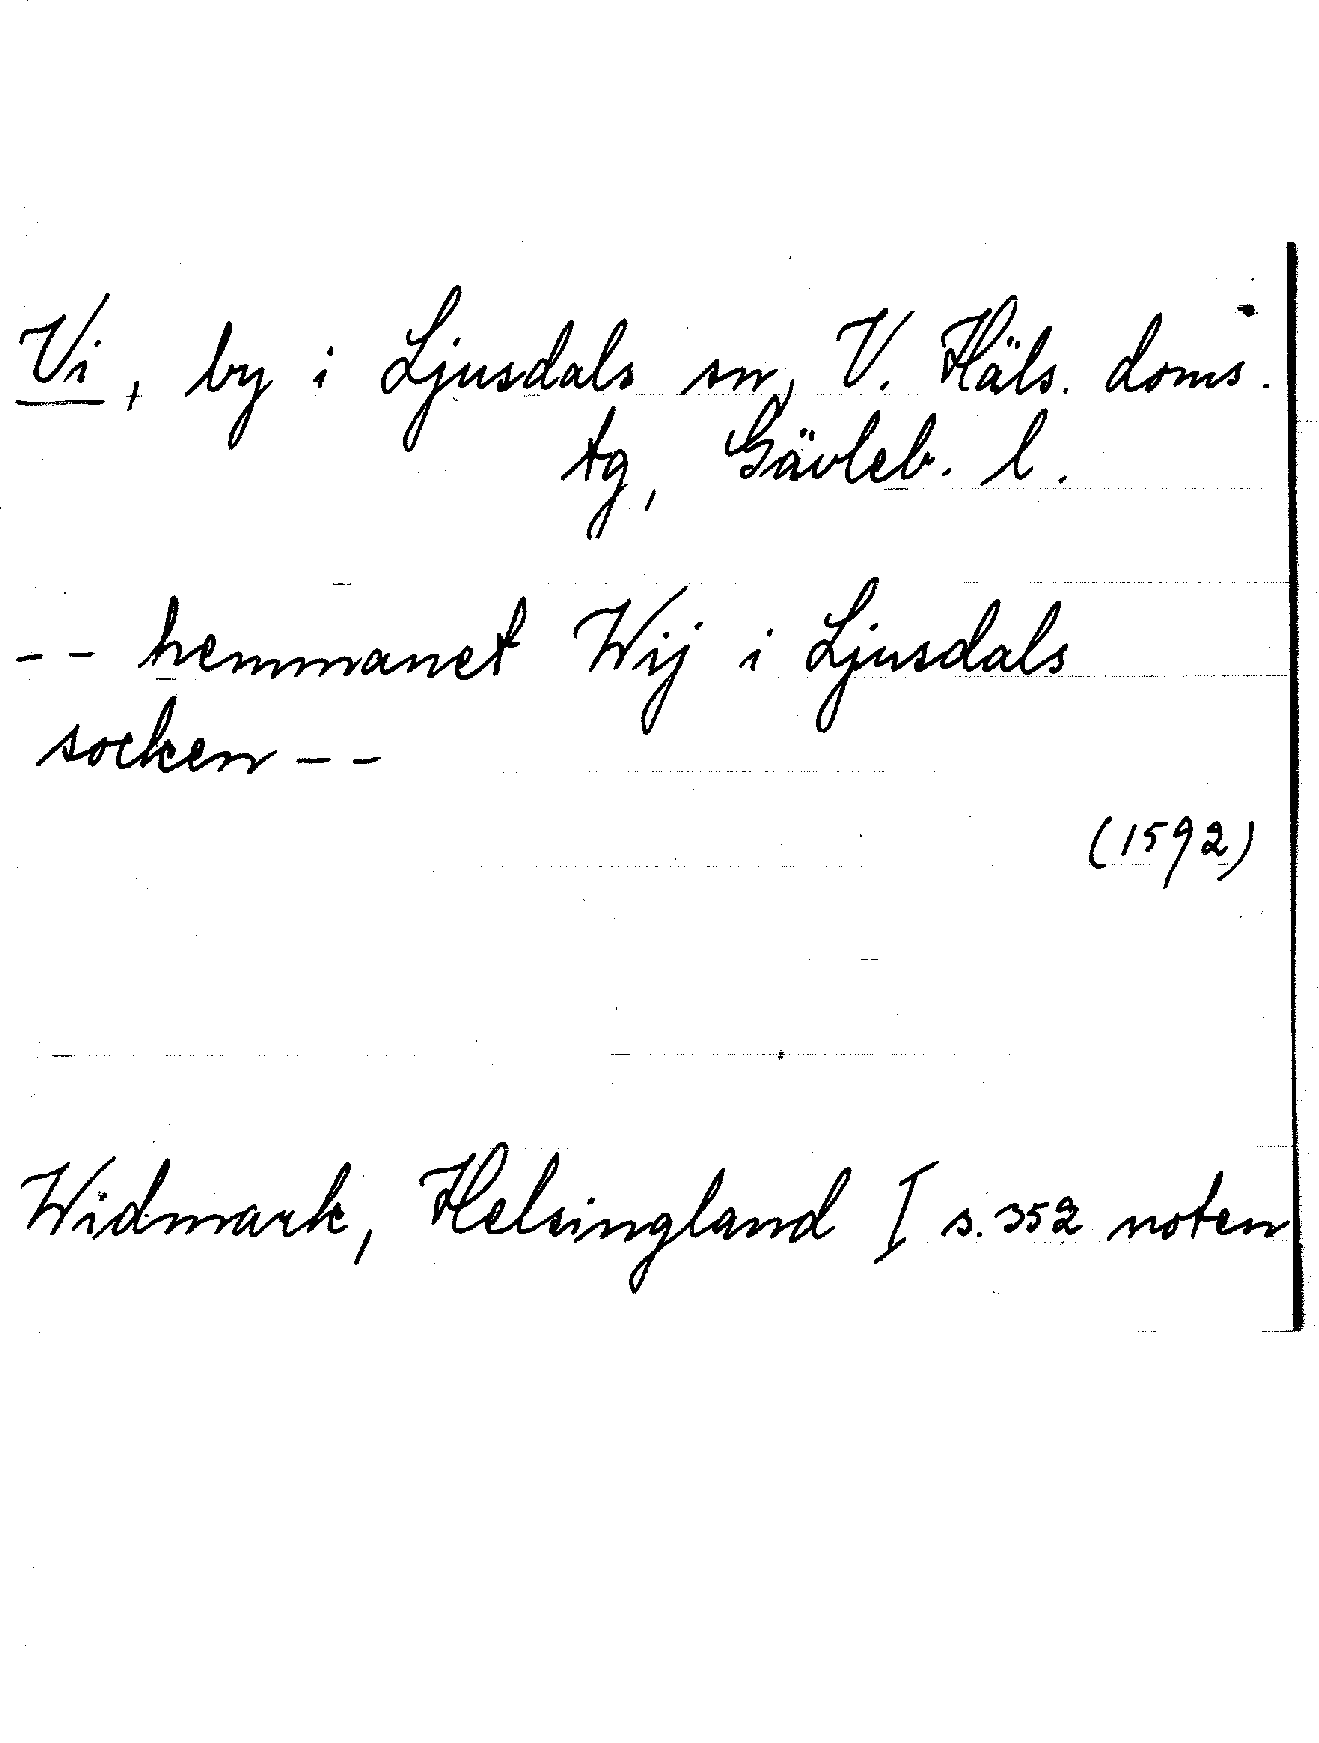 Vi, by i Ljusdals sn, V. Häls. doms.
tg, Gävleb. l.
-- hemmanet Wij i Ljusdals
socken --
(1592)
Widmark, Helsingland I s. 352 noten